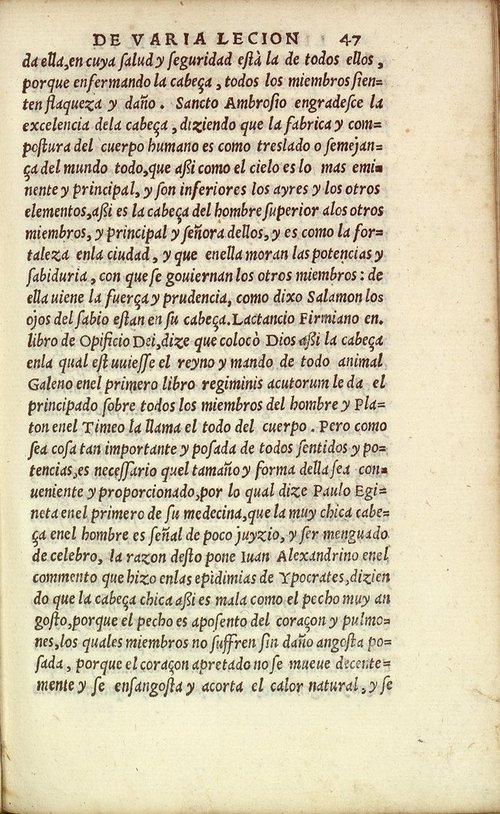 DE VARIA LECION 47
da ella, en cuya salud y seguridad està la de todos ellos,
porque enfermando la cabeça, todos los miembros sien=
ten flaqueza y daño. Sancto Ambrosio engradesce la
excelencia dela cabeça, diziendo que la fabrica y com=
postura del cuerpo humano es como treslado o semejan=
ça del mundo todo, que aßi como el cielo es lo mas emi=
nente y principal, y son inferiores los ayres y los otros
elementos, aßi es la cabeça del hombre superior alos otros
miembros, y principal y señora dellos, y es como la for=
taleza enla ciudad, y que enella moran las potencias y
sabiduria, con que se gouiernan los otros miembros: de
ella uiene la fuerça y prudencia, como dixo Salamon los
ojos del sabio estan en su cabeça. Lactancio Firmiano en.
libro de Opificio Dei, dize que colocò Dios aßi la cabeça
enla qual estuuiesse el reyno y mando de todo animal
Galeno enel primero libro regiminis acutorum le da el
principado sobre todos los miembros del hombre y Pla=
ton enel Timeo la llama el todo del cuerpo. Pero como
sea cosa tan importante y posada de todos sentidos y po=
tencias, es necessario quel tamaño y forma della sea con=
ueniente y proporcionado, por lo qual dize Paulo Egi=
neta enel primero de su medecina, que la muy chica cabe=
ça enel hombre es señal de poco juyzio, y ser menguado
de celebro, la razon desto pone Iuan Alexandrino enel
commento que hizo enlas epidimias de Ypocrates, dizien
do que la cabeça chica aßi es mala como el pecho muy an
gosto, porque el pecho es aposento del coraçon y pulmo=
nes, los quales miembros no suffren sin daño angosta po=
sada, porque el coraçon apretado no se mueue decente=
mente y se ensangosta y acorta el calor natural, y se